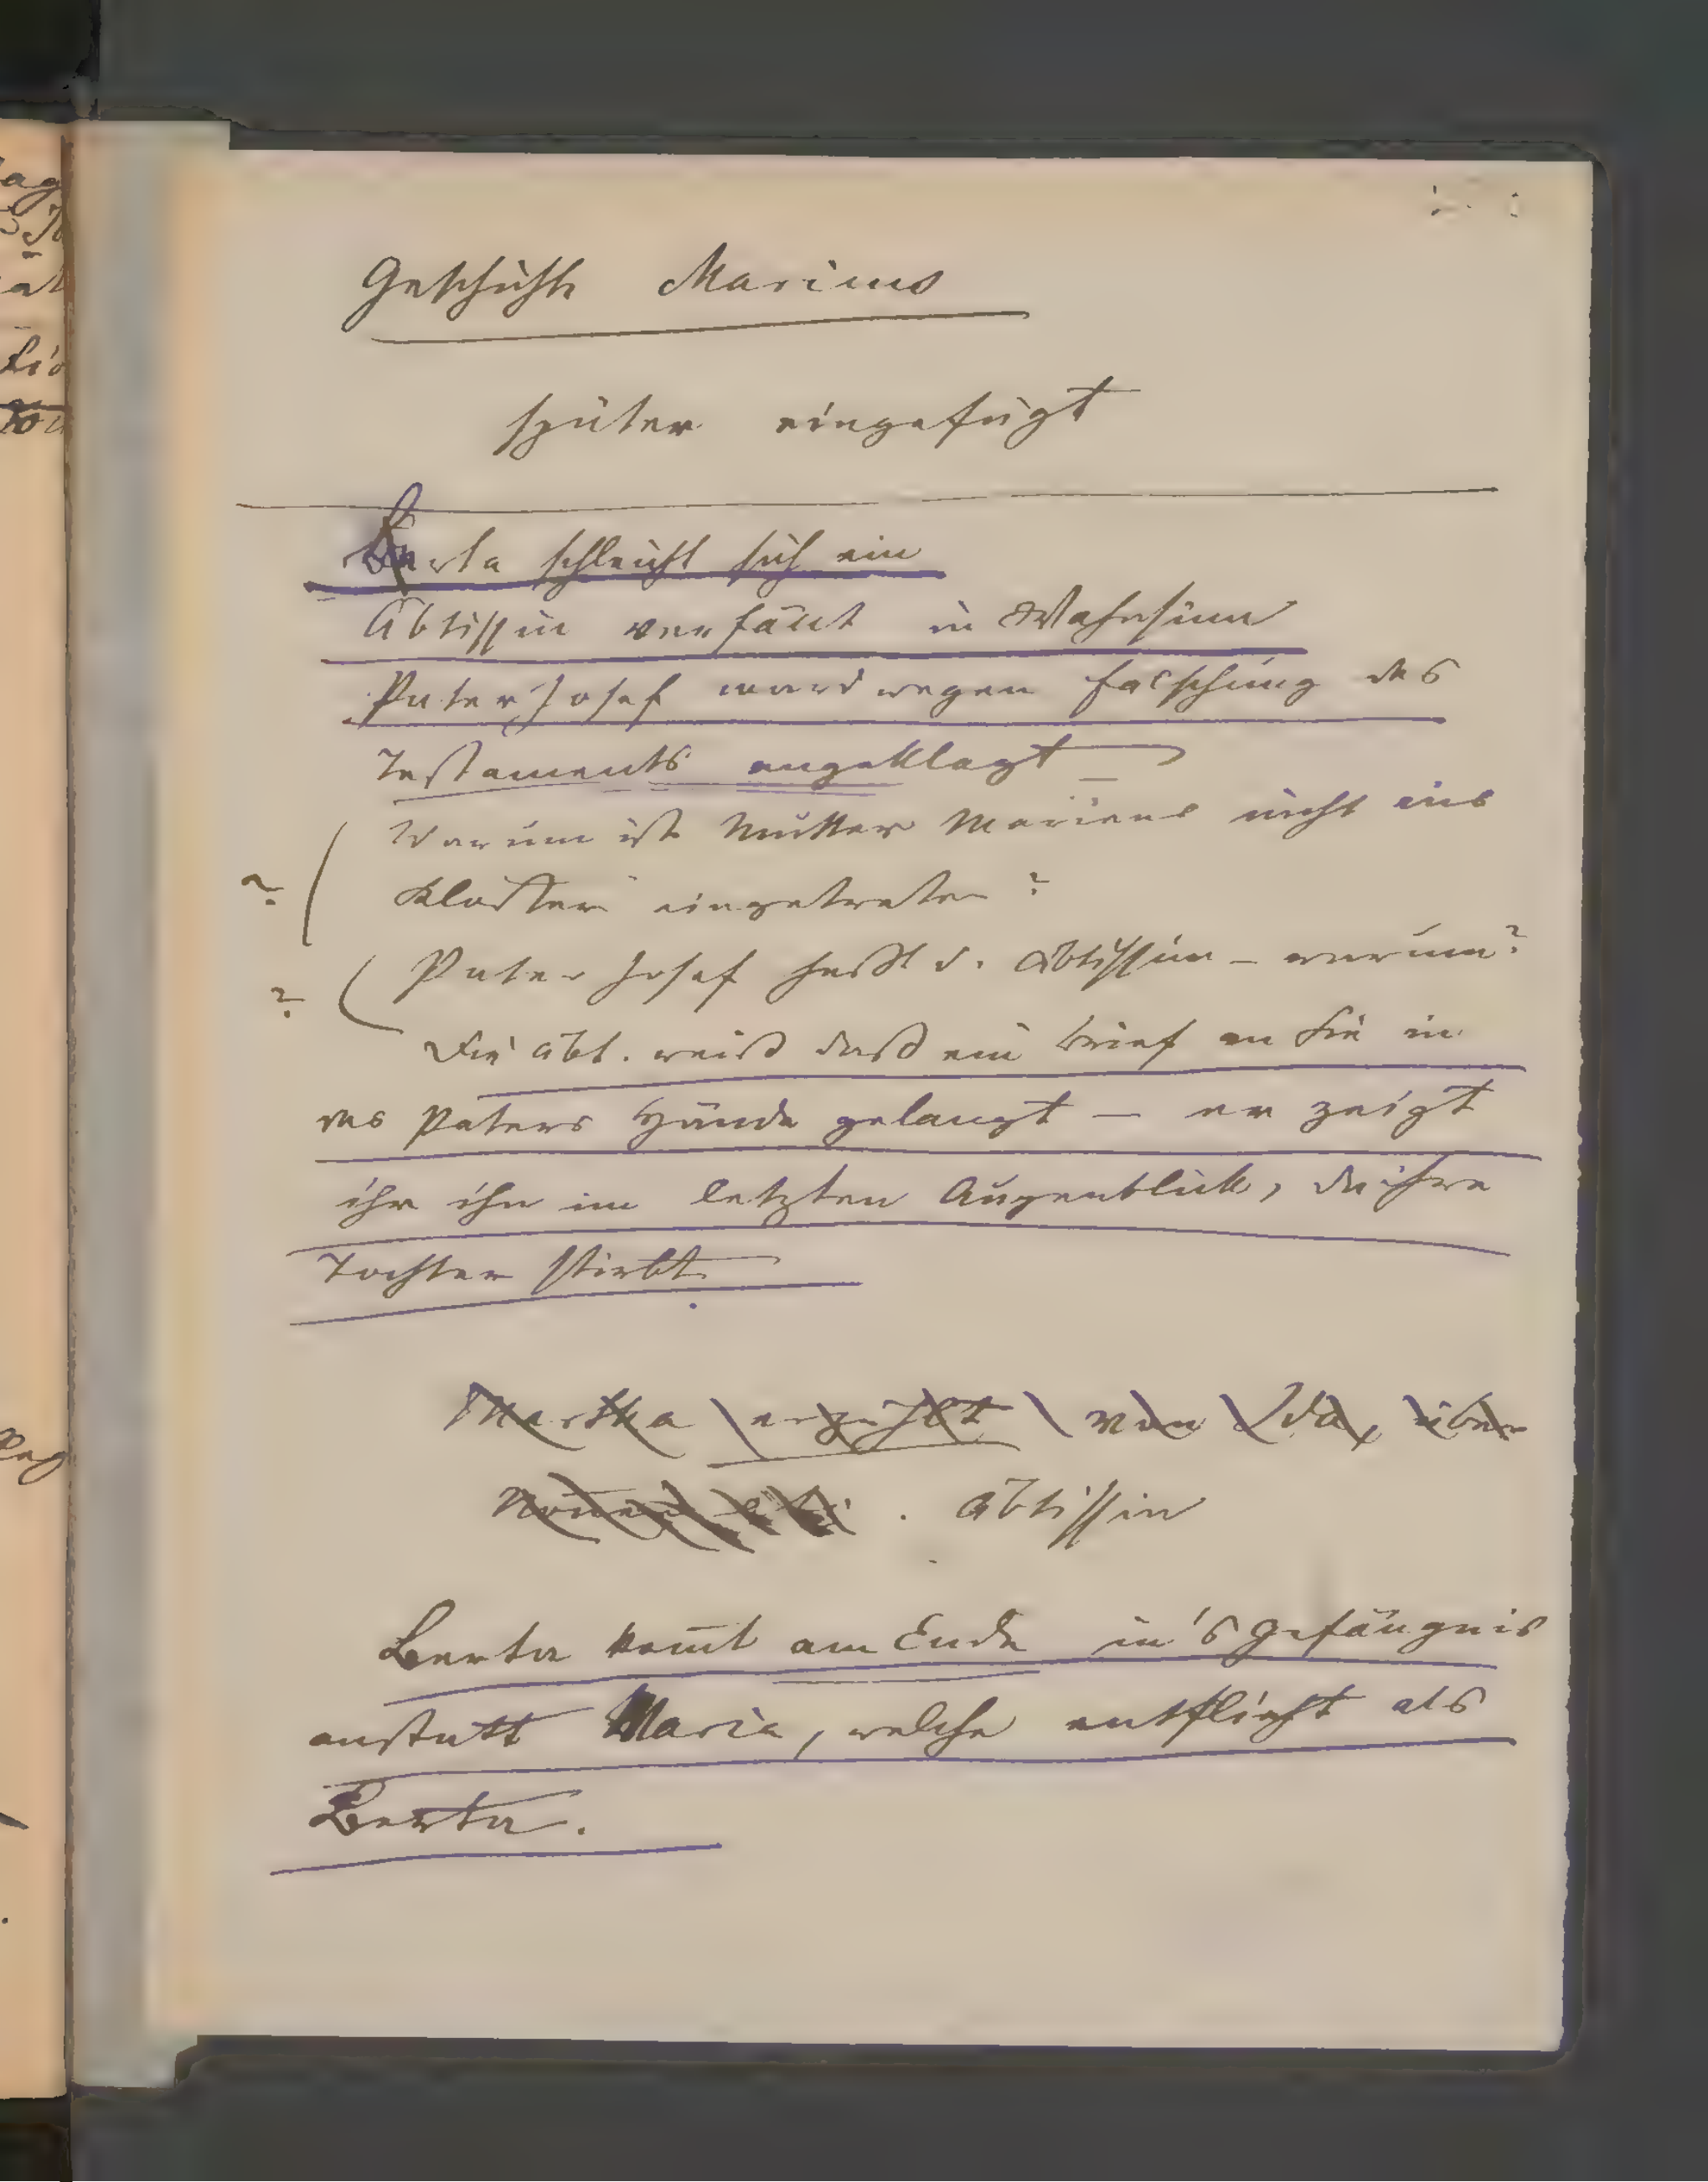 Geschichte Mariens
später eingefügt
Berta schleicht sich ein
Äbtissin verfällt in Wahnsinn
Pater Josef ward wegen Falschung des
Testaments angeklagt
Warum ist Mutter Mariens nicht ins
Kloster eingetreten?
?
Pater Josef haßt d. Äbtissin – warum?
?
Die Äbt. weiß daß ein Brief an Sie in
des Paters Hände gelangt — er zeigt
ihr ihn im letzten Augenblick, da ihre
Tochter stirbt
Martha erzählt von Ida, über
. Äbtissin
Berta kom̄t am Ende in's Gefängnis
anstatt Maria, welche entflieht als
Berta.